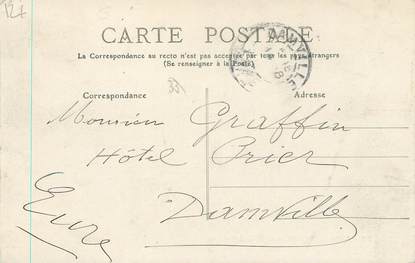 CARTE POSTALE
La Correspondance au recto n'est pas acceptée par tous les pays étrangers
(Se renseigner à la Poste)
Correspondance
Adresse
Monsieur Graffin
Hôtel Prier
Damville
Eure